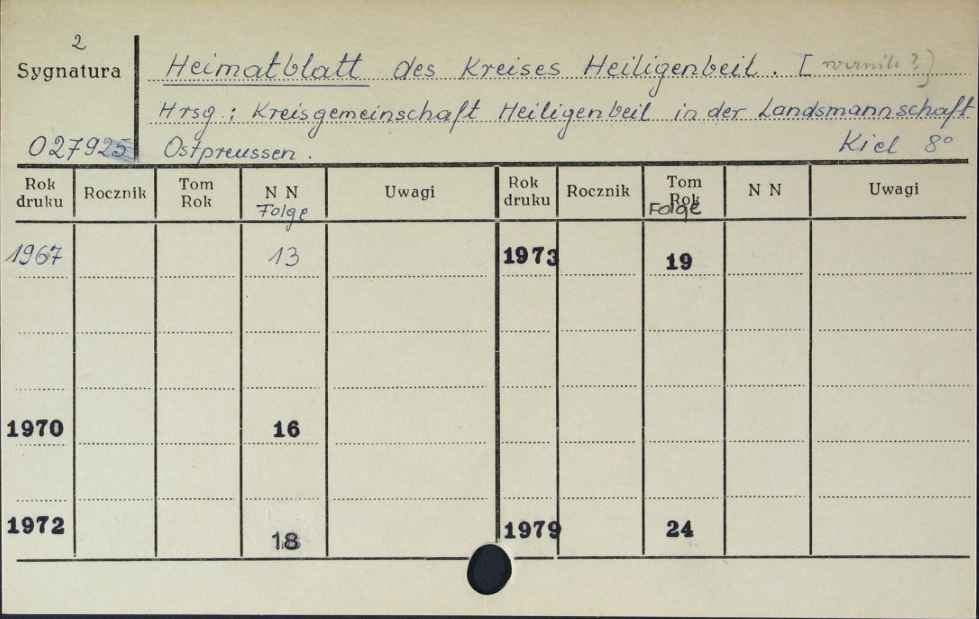 2
Sygnatura
Heimatblatt des Kreises Heiligenbeil. [rocznik?]
Hrsg: Kreisgemeinschaft Heiligenbeil in der Landsmannschaft
027925 Ostpreussen. Kiel 8°
Rok druku Rocznik Tom Rok N N Folge Uwagi Rok druku Rocznik Tom Rok Folge N N Uwagi
1967 13 1973 19
1970 16
1972 18 1979 24